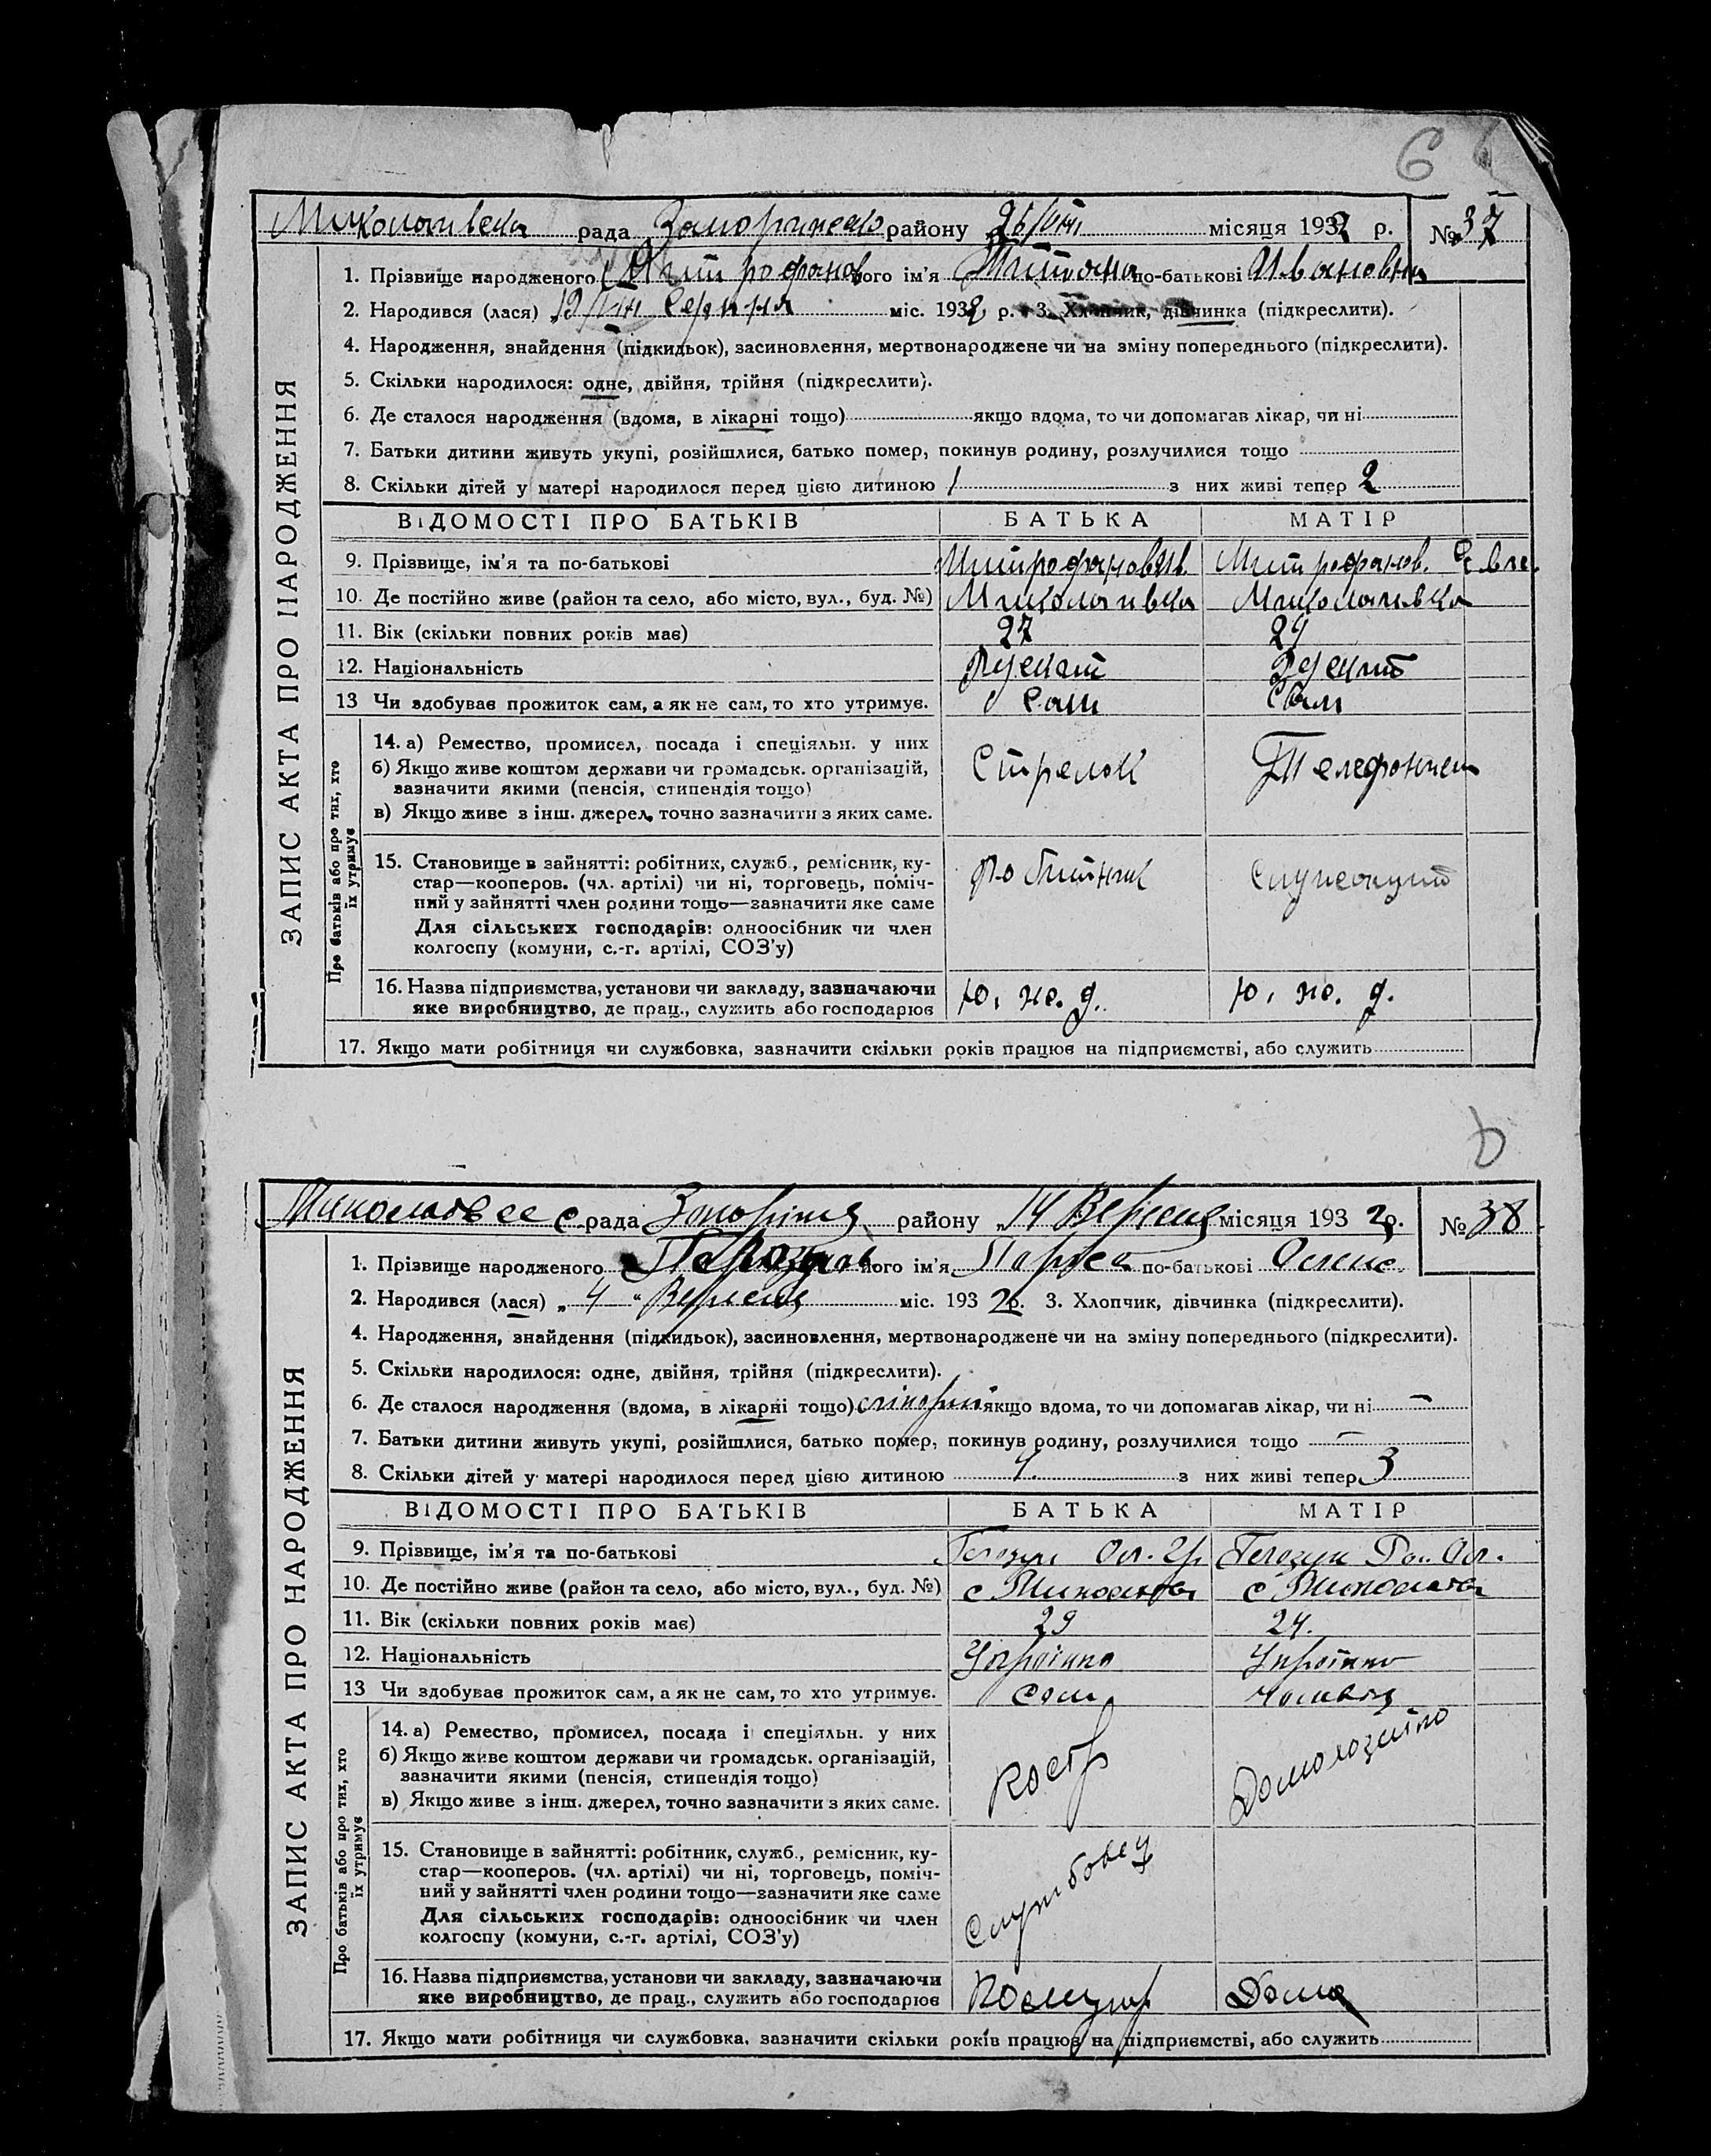 6
Миколаївська рада Запоріжсько району 26/VIII місяця 1932 р. № 37
ЗАПИС АКТА ПРО НАРОДЖЕННЯ
1. Прізвище народженого Митрофанов його ім'я Титяна по-батькові Ивановна
2. Народився (лася) 19/VIII Серпня міс. 1932 р. 3. Хлопчик, дівчинка (підкреслити).
4. Народження, знайдення (підкидьок), засиновлення, мертвонароджене чи на зміну попереднього (підкреслити).
5. Скільки народилося: одне, двійня, трійня (підкреслити).
6. Де сталося народження (вдома, в лікарні тощо) якщо вдома, то чи допомагав лікар, чи ні
7. Батьки дитини живуть укупі, розійшлися, батько помер, покинув родину, розлучилися тощо
8. Скільки дітей у матері народилося перед цією дитиною 1 з них живі тепер 2
ВІДОМОСТІ ПРО БАТЬКІВ БАТЬКА МАТІР
9. Прізвище, ім'я та по-батькові Митрофанов Ив. Митрофанов.
10. Де постійно живе (район та село, або місто, вул., буд. №) Миколаивка Миколаивка
11. Вік (скільки повних років має) 27 24
12. Національність Руский Руский
13 Чи здобуває прожиток сам, а як не сам, то хто утримує. Сам Сам
Про батьків або про тих, хто їх утримує
14. а) Ремество, промисел, посада і спеціяльн. у них
б) Якщо живе коштом держави чи громадськ. організацій,
зазначити якими (пенсія, стипендія тощо)
в) Якщо живе з інш. джерел, точно зазначити з яких саме.
Стрелок Телефонист
15. Становище в зайнятті: робітник, служб., ремісник, ку-
стар—кооперов. (чл. артілі) чи ні, торговець, поміч-
ний у зайнятті член родини тощо—зазначити яке саме
Для сільських господарів: одноосібник чи член
колгоспу (комуни, с.-г. артілі, СОЗ'у)
Робитник Служащий
16. Назва підприємства, установи чи закладу, зазначаючи
яке виробництво, де прац., служить або господарює
Ю. ж. д. Ю. ж. д.
17. Якщо мати робітниця чи службовка, зазначити скільки років працює на підприємстві, або служить
рада району „14 Вересня місяця 1932 р. № 38
ЗАПИС АКТА ПРО НАРОДЖЕННЯ
1. Прізвище народженого його ім'я по-батькові
2. Народився (лася) „4“ Вересня міс. 1932 р. 3. Хлопчик, дівчинка (підкреслити).
4. Народження, знайдення (підкидьок), засиновлення, мертвонароджене чи на зміну попереднього (підкреслити).
5. Скільки народилося: одне, двійня, трійня (підкреслити).
6. Де сталося народження (вдома, в лікарні тощо) якщо вдома, то чи допомагав лікар, чи ні —
7. Батьки дитини живуть укупі, розійшлися, батько помер, покинув родину, розлучилися тощо —
8. Скільки дітей у матері народилося перед цією дитиною 4. з них живі тепер 3
ВІДОМОСТІ ПРО БАТЬКІВ БАТЬКА МАТІР
9. Прізвище, ім'я та по-батькові
10. Де постійно живе (район та село, або місто, вул., буд. №) с с
11. Вік (скільки повних років має) 29 24.
12. Національність Україна Україна
13 Чи здобуває прожиток сам, а як не сам, то хто утримує. Сам чоловік
Про батьків або про тих, хто їх утримує
14. а) Ремество, промисел, посада і спеціяльн. у них
б) Якщо живе коштом держави чи громадськ. організацій,
зазначити якими (пенсія, стипендія тощо)
в) Якщо живе з інш. джерел, точно зазначити з яких саме.
Домохозяйка
15. Становище в зайнятті: робітник, служб., ремісник, ку-
стар—кооперов. (чл. артілі) чи ні, торговець, поміч-
ний у зайнятті член родини тощо—зазначити яке саме
Для сільських господарів: одноосібник чи член
колгоспу (комуни, с.-г. артілі, СОЗ'у)
Службовец
16. Назва підприємства, установи чи закладу, зазначаючи
яке виробництво, де прац., служить або господарює
Дома
17. Якщо мати робітниця чи службовка, зазначити скільки років працює на підприємстві, або служить